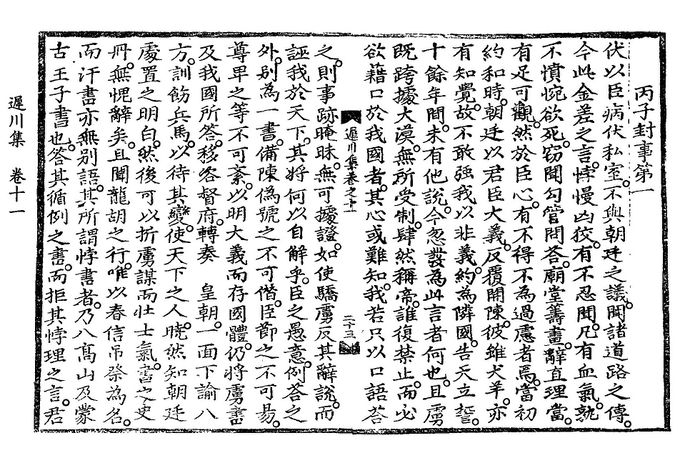 丙子封事第一
伏以臣病伏私室。不與朝廷之議。聞諸道路之傳。
今此金差之言。悖慢凶狡。有不忍聞。凡有血氣。孰
不憤惋欲死。窃聞勾管問答。廟堂籌畫。辭直理當。
有足可觀。然於臣心。有不得不爲過慮者焉。當初
約和時。朝廷以君臣大義。反覆開陳。彼雖犬羊。亦
有知覺。故不敢強我以非義。約爲隣國。告天立誓。
十餘年間。未有他說。今忽發爲此言者何也。且虜
旣跨據大漠。無所受制。肆然稱帝。誰復禁止。而必
欲藉口於我國者。其心或難知。我若只以口語答
遲川集卷之十一
二十三
之。則事跡晻昧。無可據證。如使驕虜反其辭說。而
誣我於天下。其將何以自解乎。臣之愚意。例答之
外。別爲一書。備陳僞號之不可僭。臣節之不可易。
尊卑之等不可紊。以明大義而存國體。仍將虜書
及我國所答。移咨督府。轉奏 皇朝。一面下諭八
方。訓飭兵馬。以待其變。使天下之人。曉然知朝廷
處置之明白。然後可以折虜謀而壯士氣。書之史
冊。無愧辭矣。且聞龍胡之行。唯以春信吊祭爲名。
而汗書亦無別語。其所謂悖書者。乃八高山及蒙
古王子書也。答其循例之書。而拒其悖理之言。君
遲川集 卷十一